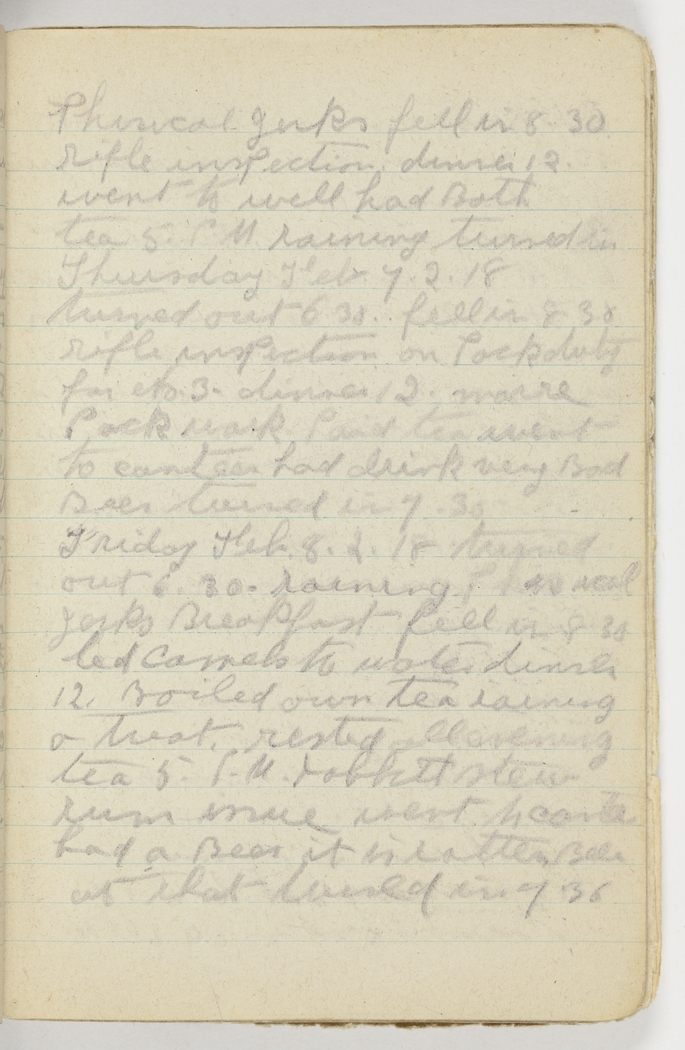 Phisical jerks fell in 8.30
rifle inspection. dinner 12.
went to well had Bath
tea 5. P M raining turned in
Thursday Feb 7.2.18
turned out 6 30. fell in 8 30
rifle inspection on Pack duty
for No 3. dinner 12. more
Pack work Paid tea went
to canteen had drink very Bad
Beer turned in 7.30
Friday Feb. 8.2.18 turned
out 6.30. raining Phisical
jerks Breakfast fell in 8 30
led Camels to water dinner
12. Boiled own tea raining
a treat. rested all evening
tea 5. P.M. rabbitt stew
rum issue went to
had a Beer it is rotten Beer
at that turned in 7 30